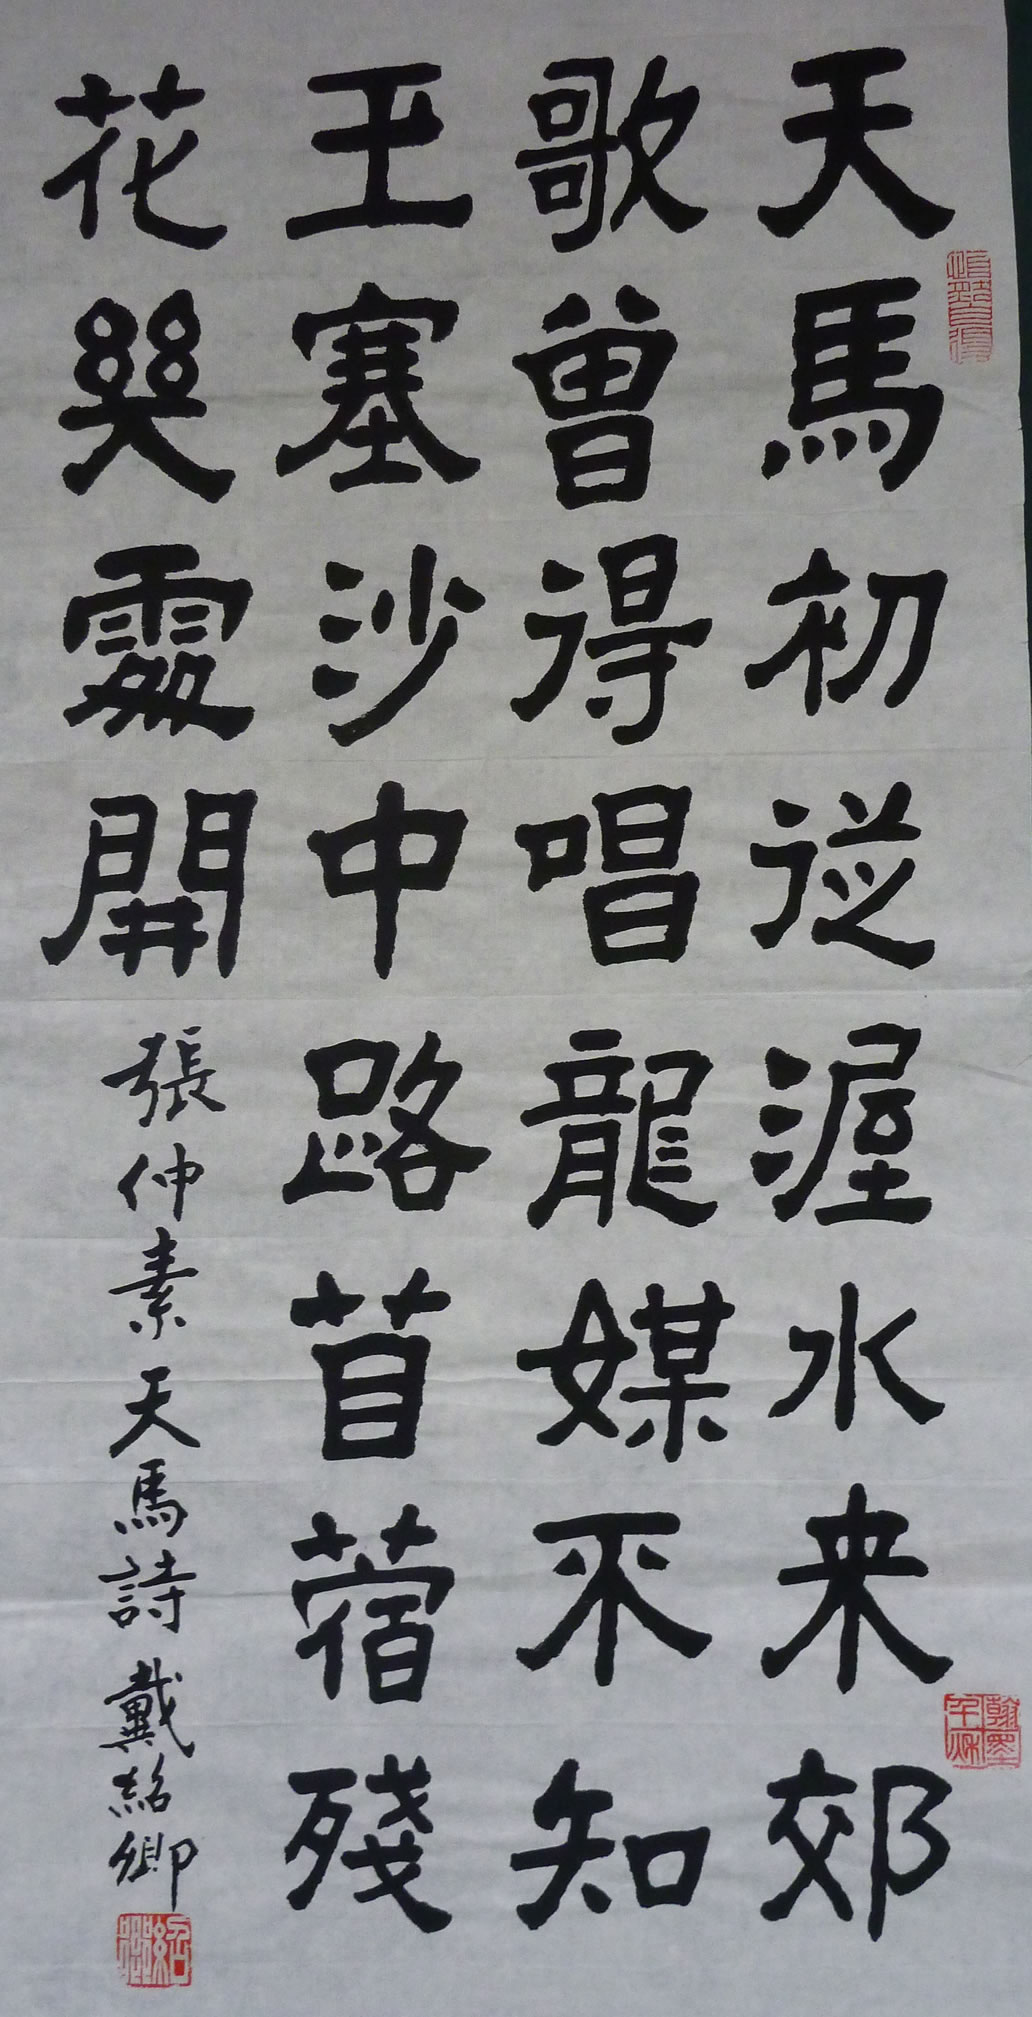 天馬初從渥水来郊
歌曾得唱龍媒不知
玉塞沙中路苜蓿殘
花幾處開
張仲素天馬詩 戴紹卿
紹卿
翰墨千秋